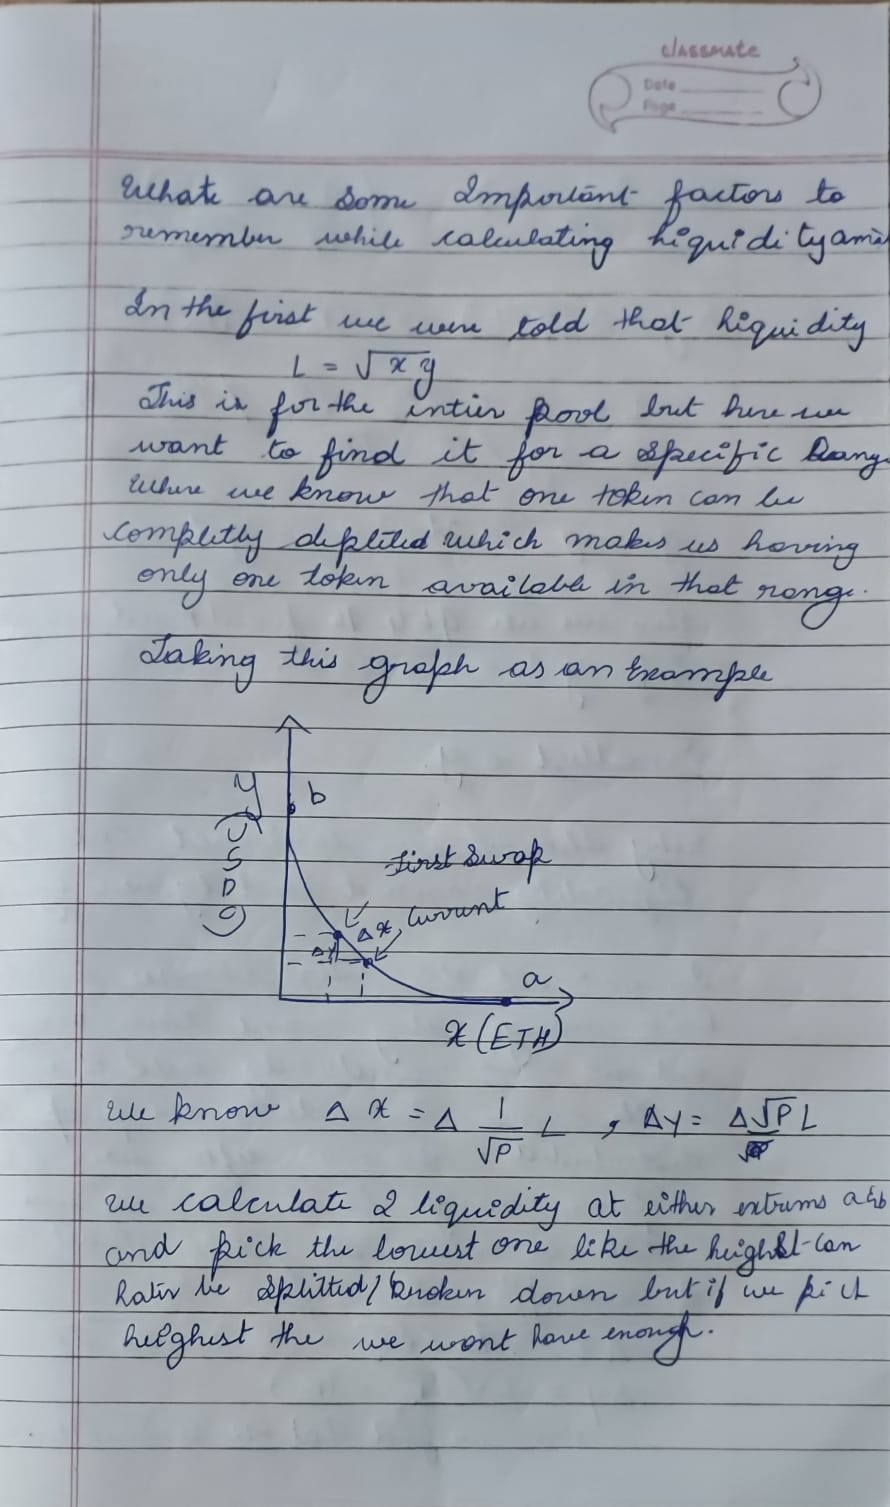 classmate
Date
Page
What are some Important factors to
remember while calculating liquidity
In the first we were told that liquidity
L = √xy
This is for the intier pool but here we
want to find it for a specific Rang
Where we know that one token can be
completly deplited which makes us having
only one token available in that range.
Taking this graph as an Example
y (USDC)
b
First Swap
Δx, Current
Δy
a
x (ETH)
We know Δx = Δ 1/√P L , Δy = Δ√P L
We calculate 2 liquidity at either extrums a & b
and pick the lowest one like the heighst can
later be splitted/broken down but if we pick
heighest the we wont have enough.